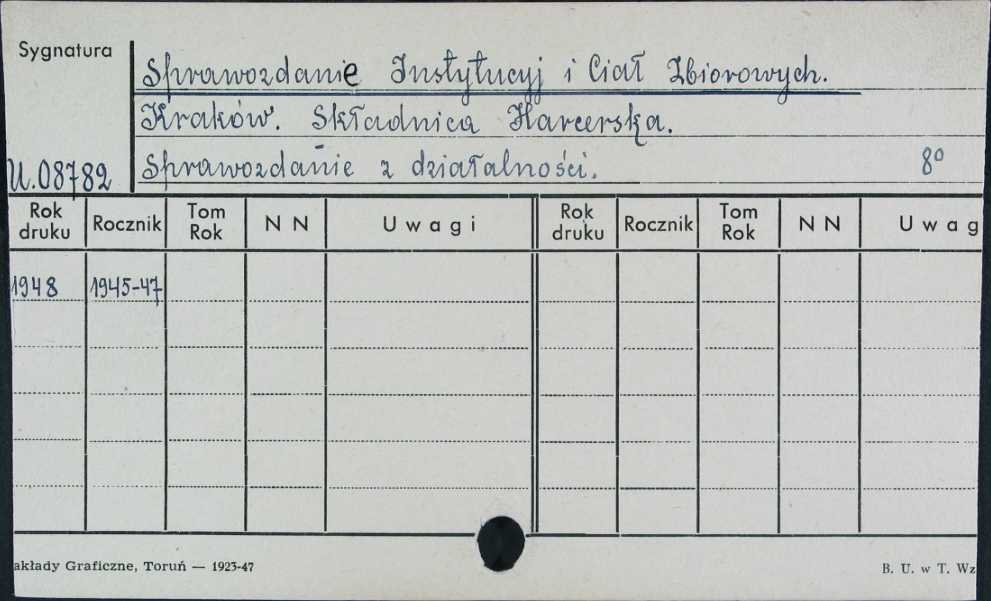 Sygnatura
Sprawozdanie Instytucyj i Ciał Zbiorowych.
Kraków. Składnica Harcerska.
U.08782
Sprawozdanie z działalności. 8º
Rok druku Rocznik Tom Rok N N Uwagi Rok druku Rocznik Tom Rok N N Uwag
1948 1945-47
akłady Graficzne, Toruń — 1923-47
B. U. w T. Wz